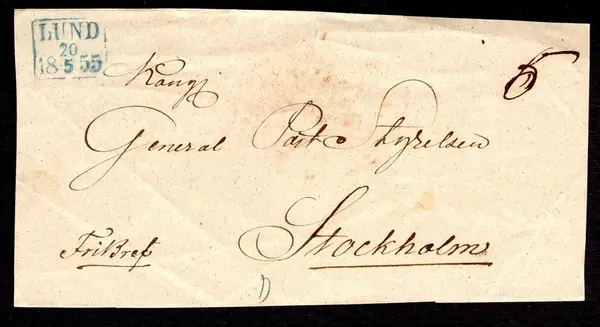 LUND
20
18 5 55
Kongl
5
General Post Styrelsen
Stockholm
FriBref
D